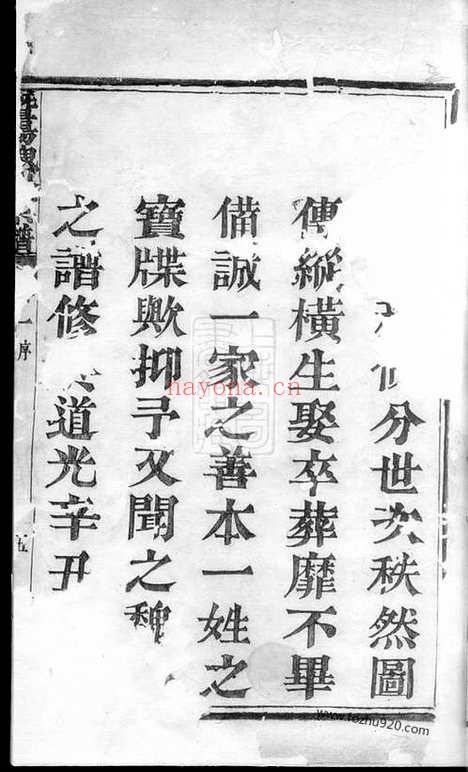 分世次秩然圖
傳縱橫生娶卒葬靡不畢
備誠一家之善本一姓之
寶牒歟抑予又聞之魏
之譜修 道光辛丑
譜
一序
五
hayona.cn
www.tozhu920.com